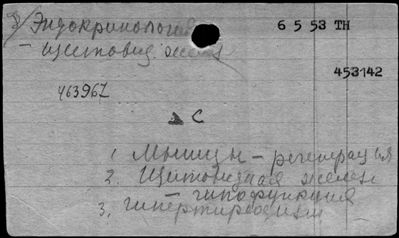 Эндокринология 6 5 53 TH
– щитовид. желез
453142
463967
С
1. Мышцы – регенерация
2. Щитовидная железа
– гипофункция
3. гипертиреодизм